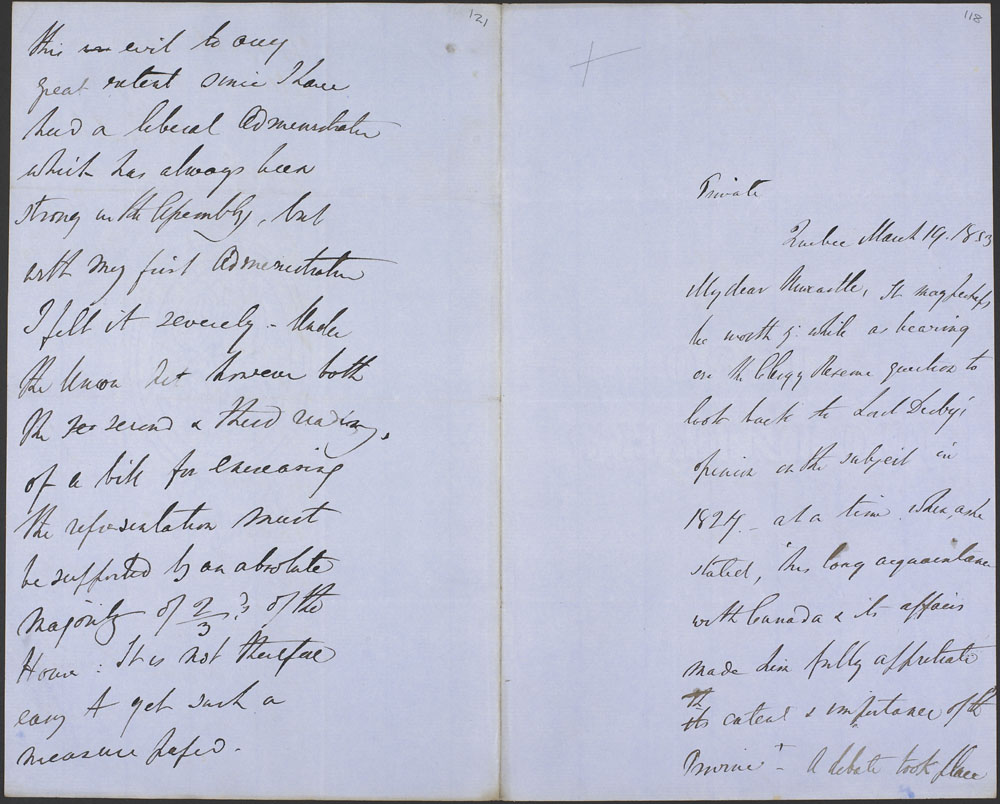 121
this evil to any
great extent since I have
had a liberal Administration
which has always been
strong in the Assembly, but
with my first Administration
I felt it severely - Under
the Union Act however both
the second & third reading,
of a bill for increasing
the representation must
be supported by an absolute
majority of 2/3 ds of the
House: It is not therefore
easy to get such a
measure passed.
118
Private
Quebec March 19. 1853
My dear Newcastle, It may perhaps
be worth yr while as bearing
on the Clergy Reserve question to
look back to Lord Derby's
opinion on the subject in
1827 - at a time when, as he
stated, "his long acquaintance
with Canada & its affairs
made him fully appretiate
the extent & importance of the
Province" - A debate took place